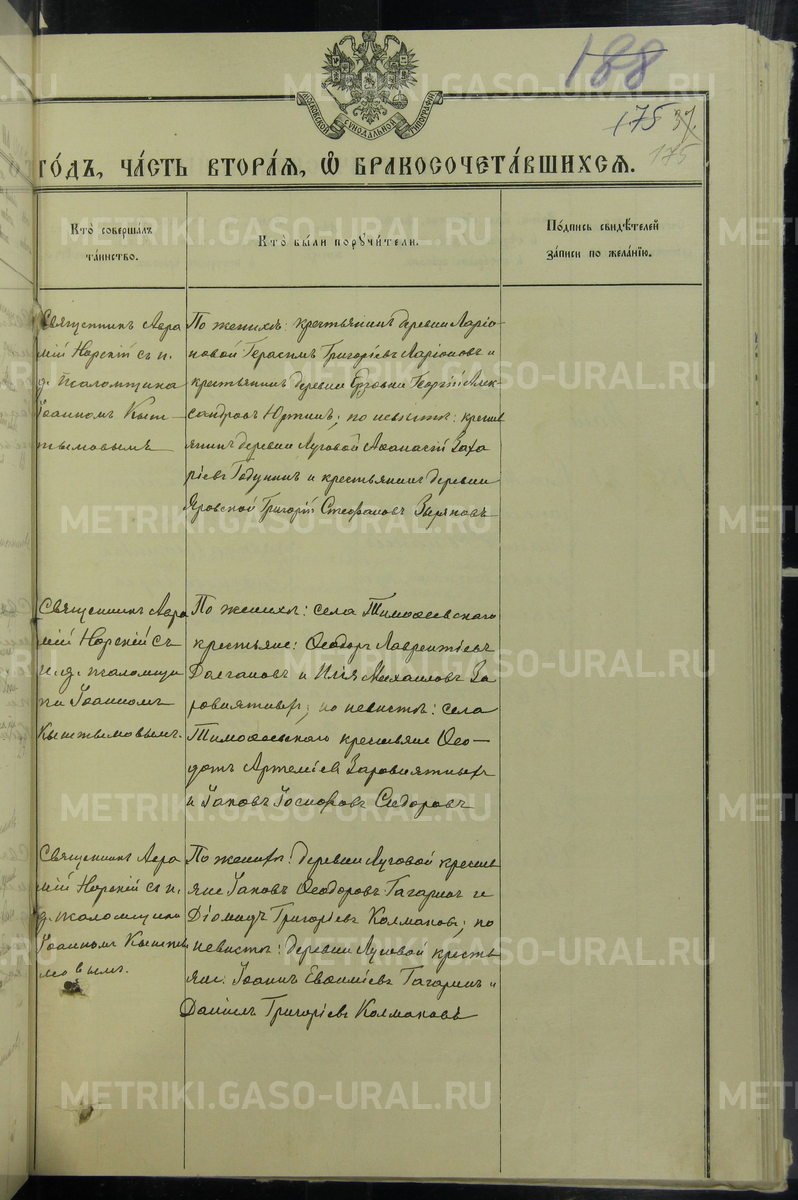 188
175 37.
175
МОСКОВСКОЙ СѴНОДАЛЬНОЙ ТИПОГРАФІИ
ГО́ДЪ, ЧА́СТЬ ВТОРА́Ѧ, Ѽ БРАКОСОЧЕТА́ВШИХСѦ.
Кто̀ совершалъ
та́инство.
Кто̀ бы́ли порꙋчи́тели.
По́дпись свидѣ́телей
за́писи по жела́нїю.
Священникъ Авра
мій Норскій съ и.
д. псаломщика
Іоанномъ Кыш
тымовымъ
По женихѣ: крестьянинъ деревни Ларіо-
новой Герасимъ Григорьевъ Ларіоновъ и
крестьянинъ деревни Ерзовки Георгій Алек-
сандровъ Юртинъ; по невѣстѣ: кресть
янинъ деревни Луговой Аѳанасій Заха
ріевъ Годунинъ и крестьянинъ деревни
Яровской Григорій Стефановъ Зыряновъ
Священникъ Авра
мій Норскій съ
и. д. псаломщи
ка Іоанномъ
Кыштымовымъ.
По женихѣ: села Тимоѳеевскаго
крестьяне: Ѳеодоръ Лаврентіевъ
Долгановъ и Илія Михаиловъ За
ровнятныхъ; по невѣстѣ: села
Тимоѳеевскаго крестьяне Ѳео-
дотъ Артеміевъ Заровнятныхъ
и Іаковъ Іосифовъ Сидоровъ
Священникъ Авра
мій Норскій съ и.
д. псаломщика
Іоанномъ Кышты
мовымъ.
По женихѣ: деревни Луговой кресть
яне Іаковъ Ѳеодоровъ Гагаринъ и
Діомидъ Григорьевъ Колмаковъ; по
невѣстѣ: деревни Луговой кресть
яне: Іоаннъ Евѳиміевъ Гагаринъ и
Даніилъ Григоріевъ Колмаковъ
METRIKI.GASO-URAL.RU